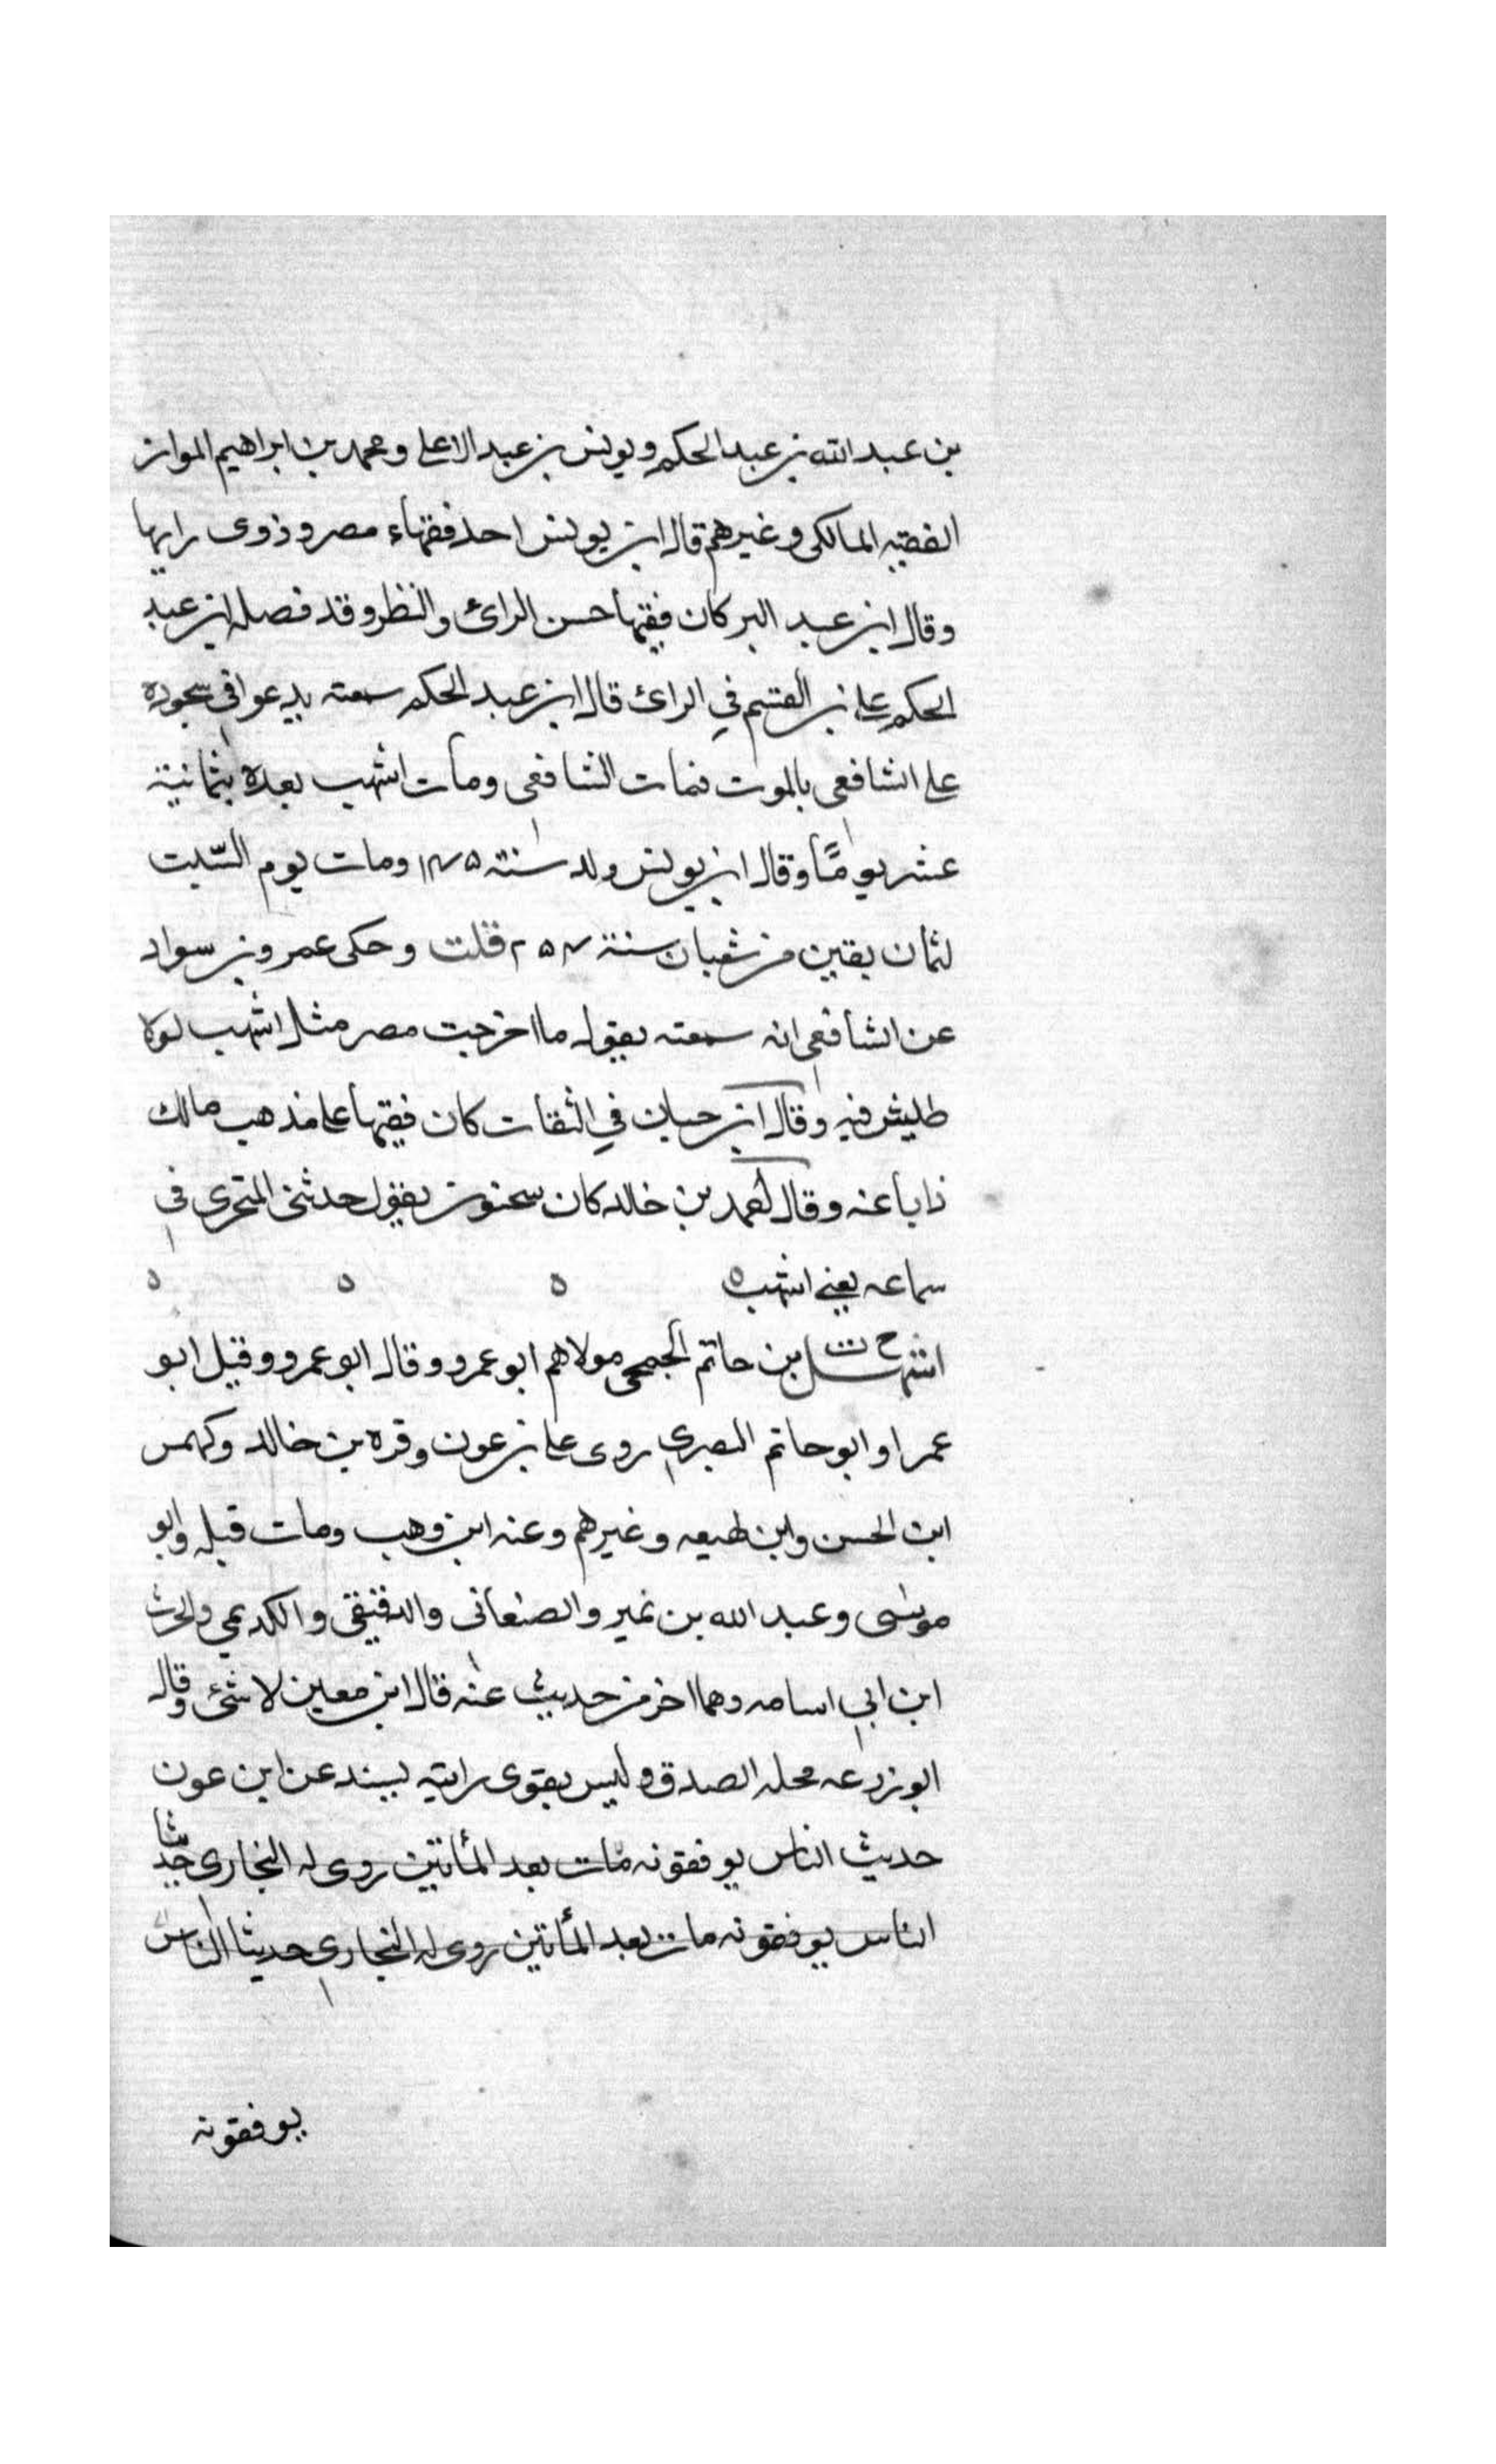 بن عبد الله بن عبد الحكم ويونس بن عبد الاعلى ومحمد بن ابراهيم المواز
الفقيه المالكى وغيرهم قال ابن يونس احد فقهاء مصر وذوى رايها
وقال ابن عبد البر كان فقيها حسن الرائ والنظر وقد فضله ابن عبد
الحكم على بن القسم في الرائ قال ابن عبد الحكم سمعته يدعوا في سجوده
على الشافعى بالموت فمات الشافعى ومات اشهب بعده بثمانية
عشر يومًا وقال ابن يونس ولد سنة ومات يوم السّبت
لثمان بقين من شعبان سنة قلت وحكى عمرو بن سواد
عن الشافعى انه سمعته يقول ما اخرجت مصر مثل اشهب لولا
طيش فيه وقال ابن حبان في الثقات كان فقيها على مذهب مالك
ذابا عنه وقال بن خالد كان سحنون يقول حدثنى المتحرى فى
سماعه يعنى اشهب ه ه ه ه
اشهل بن حاتم الجمحى مولاهم ابو عمرو وقال ابو عمرو وقيل ابو
عمر او ابو حاتم البصرى روى على بن عون وقره بن خالد وكهمس
ابن الحسن وابن لهيعه وغيرهم وعنه ابن وهب ومات قبله وابو
موسى وعبد الله بن نمير والصنعانى والدقيقى والكديمى والحرث
ابن ابى اسامه وهما اخر من حديث عنه قال ابن معين لا شئ وقال
ابو زرعه محله الصدق وليس بقوى رايته يسند عن ابن عون
حديث الناس يوفقونه مات بعد المأتين روى له البخارى حديثا
الناس يوفقونه مات بعد المأتين روى له البخارى حديثا الناس
يوفقونه